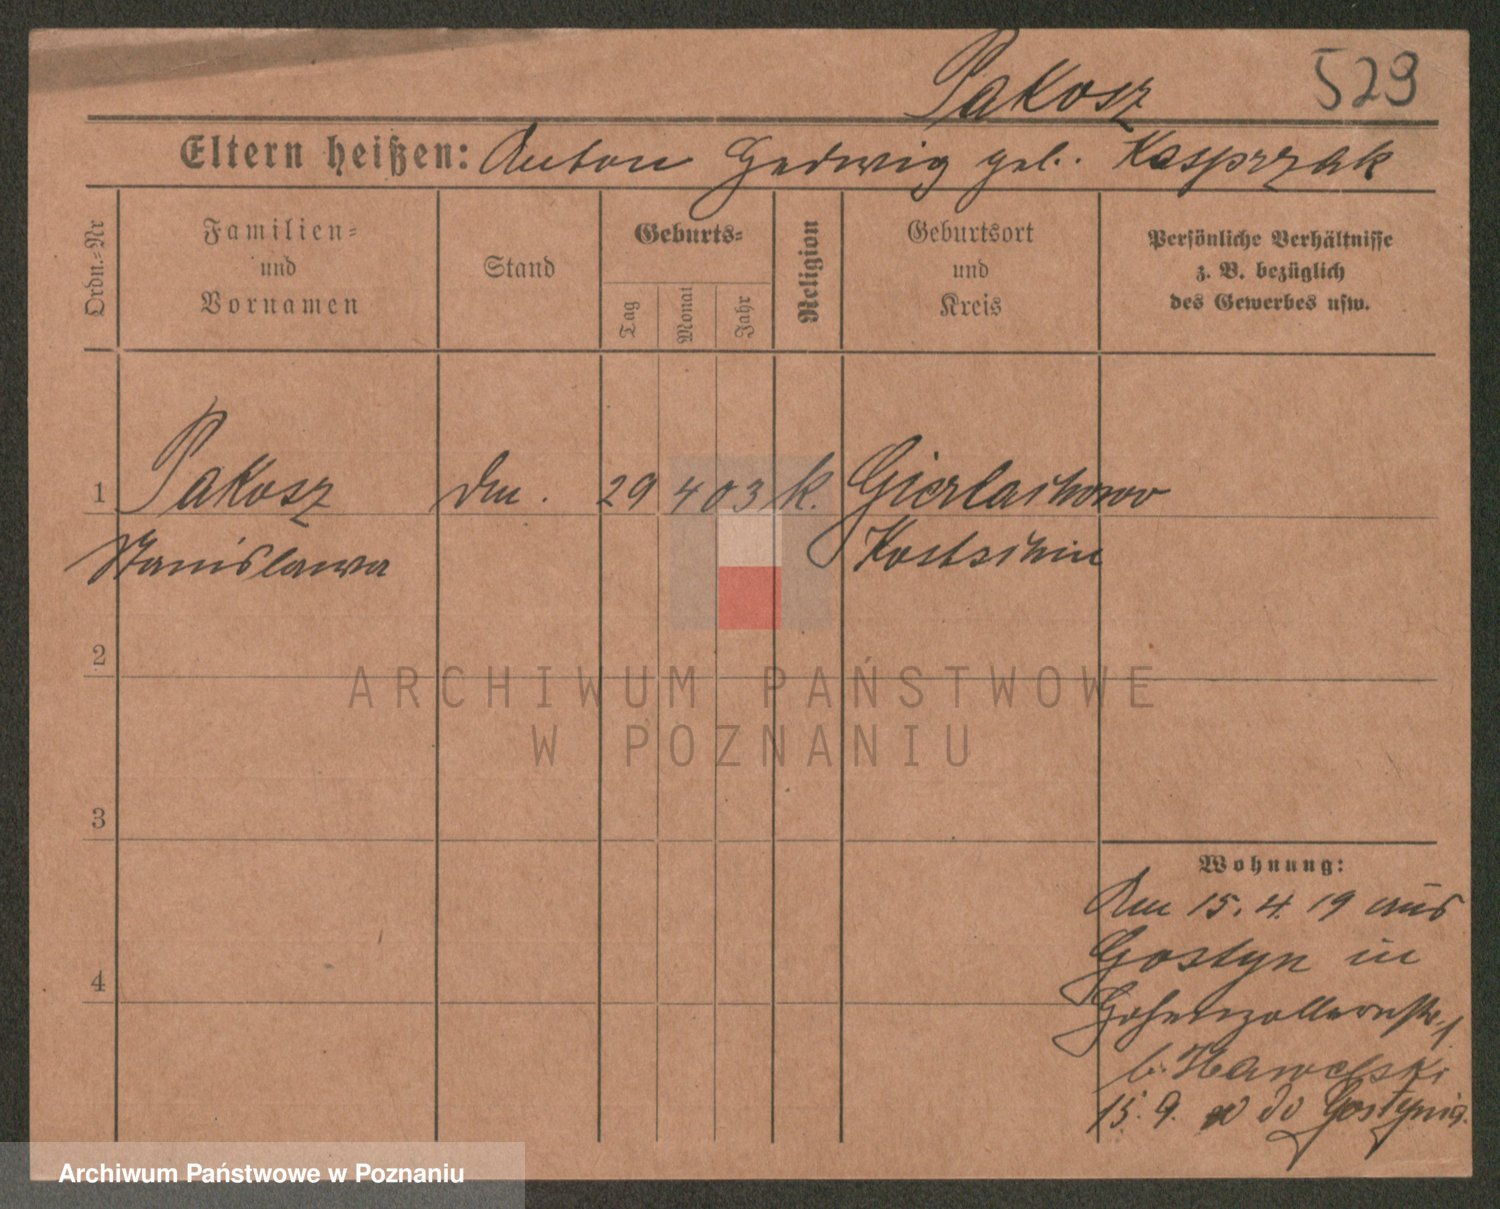 529
Pakosz
Eltern heißen: Anton Hedwig geb. Kasprzak
Ordn.-Nr
Familien-
und
Vornamen
Stand
Geburts-
Tag
Monat
Jahr
Religion
Geburtsort
und
Kreis
Persönliche Verhältnisse
z. B. bezüglich
des Gewerbes usw.
1 Pakosz 29 4 03 k. Gierlachowo
Stanislawa Kostschin
2
3
4
Wohnung:
Am 15. 4. 19 aus
Gostyn in
Hohenzollernstr. 1
b. Hawelski
15. 9. do
ARCHIWUM PAŃSTWOWE
W POZNANIU
Archiwum Państwowe w Poznaniu